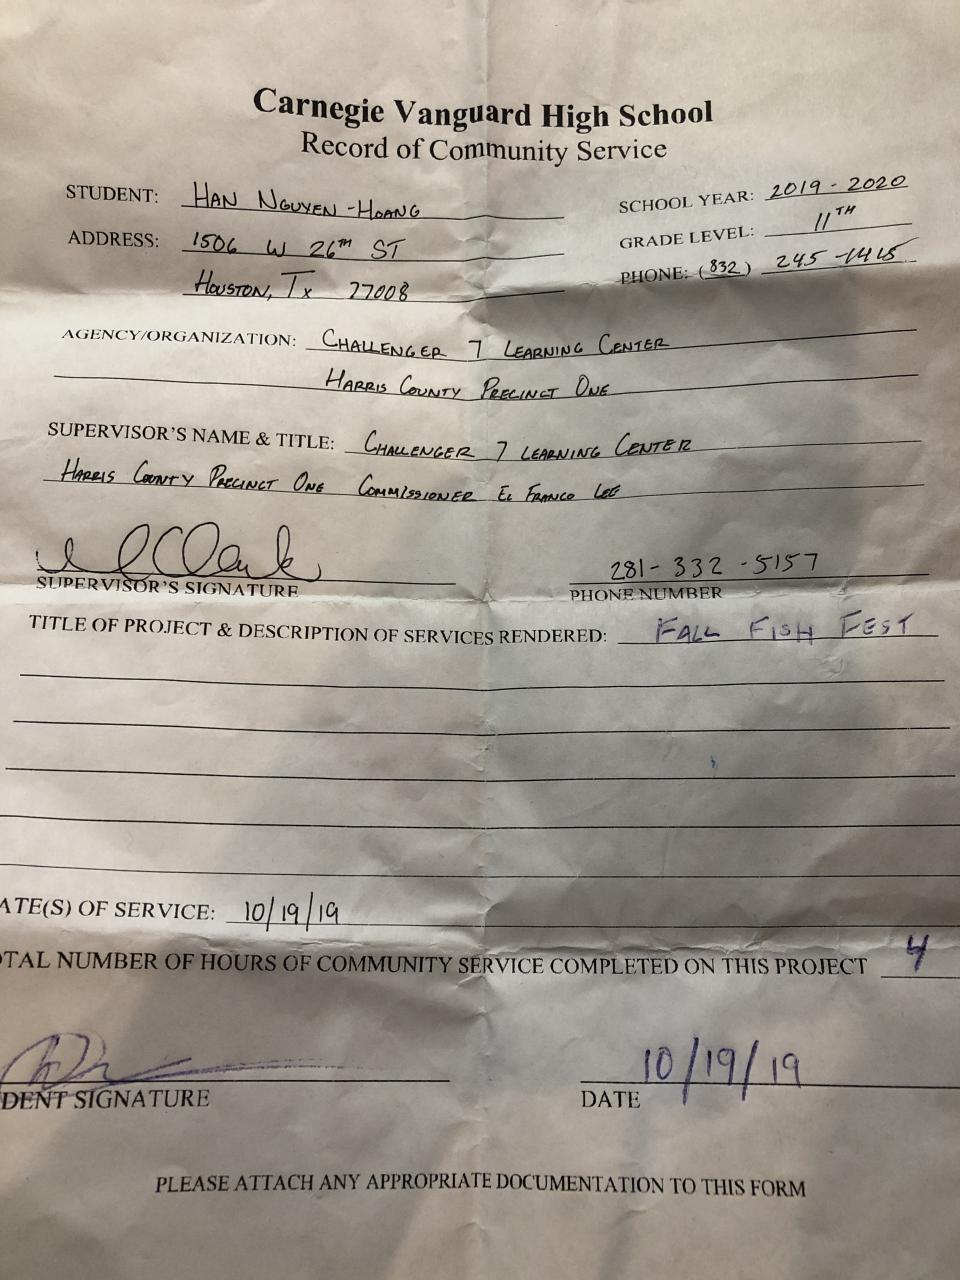 Carnegie Vanguard High School
Record of Community Service
STUDENT: HAN NGUYEN-HOANG
SCHOOL YEAR: 2019-2020
ADDRESS: 1506 W 26TH ST
GRADE LEVEL: 11TH
HOUSTON, TX 77008
PHONE: (832) 245-1415
AGENCY/ORGANIZATION: CHALLENGER 7 LEARNING CENTER
HARRIS COUNTY PRECINCT ONE
SUPERVISOR'S NAME & TITLE: CHALLENGER 7 LEARNING CENTER
HARRIS COUNTY PRECINCT ONE COMMISSIONER EL FRANCO LEE
281-332-5157
SUPERVISOR'S SIGNATURE
PHONE NUMBER
TITLE OF PROJECT & DESCRIPTION OF SERVICES RENDERED: FALL FISH FEST
ATE(S) OF SERVICE: 10/19/19
OTAL NUMBER OF HOURS OF COMMUNITY SERVICE COMPLETED ON THIS PROJECT 4
10/19/19
DENT SIGNATURE
DATE
PLEASE ATTACH ANY APPROPRIATE DOCUMENTATION TO THIS FORM